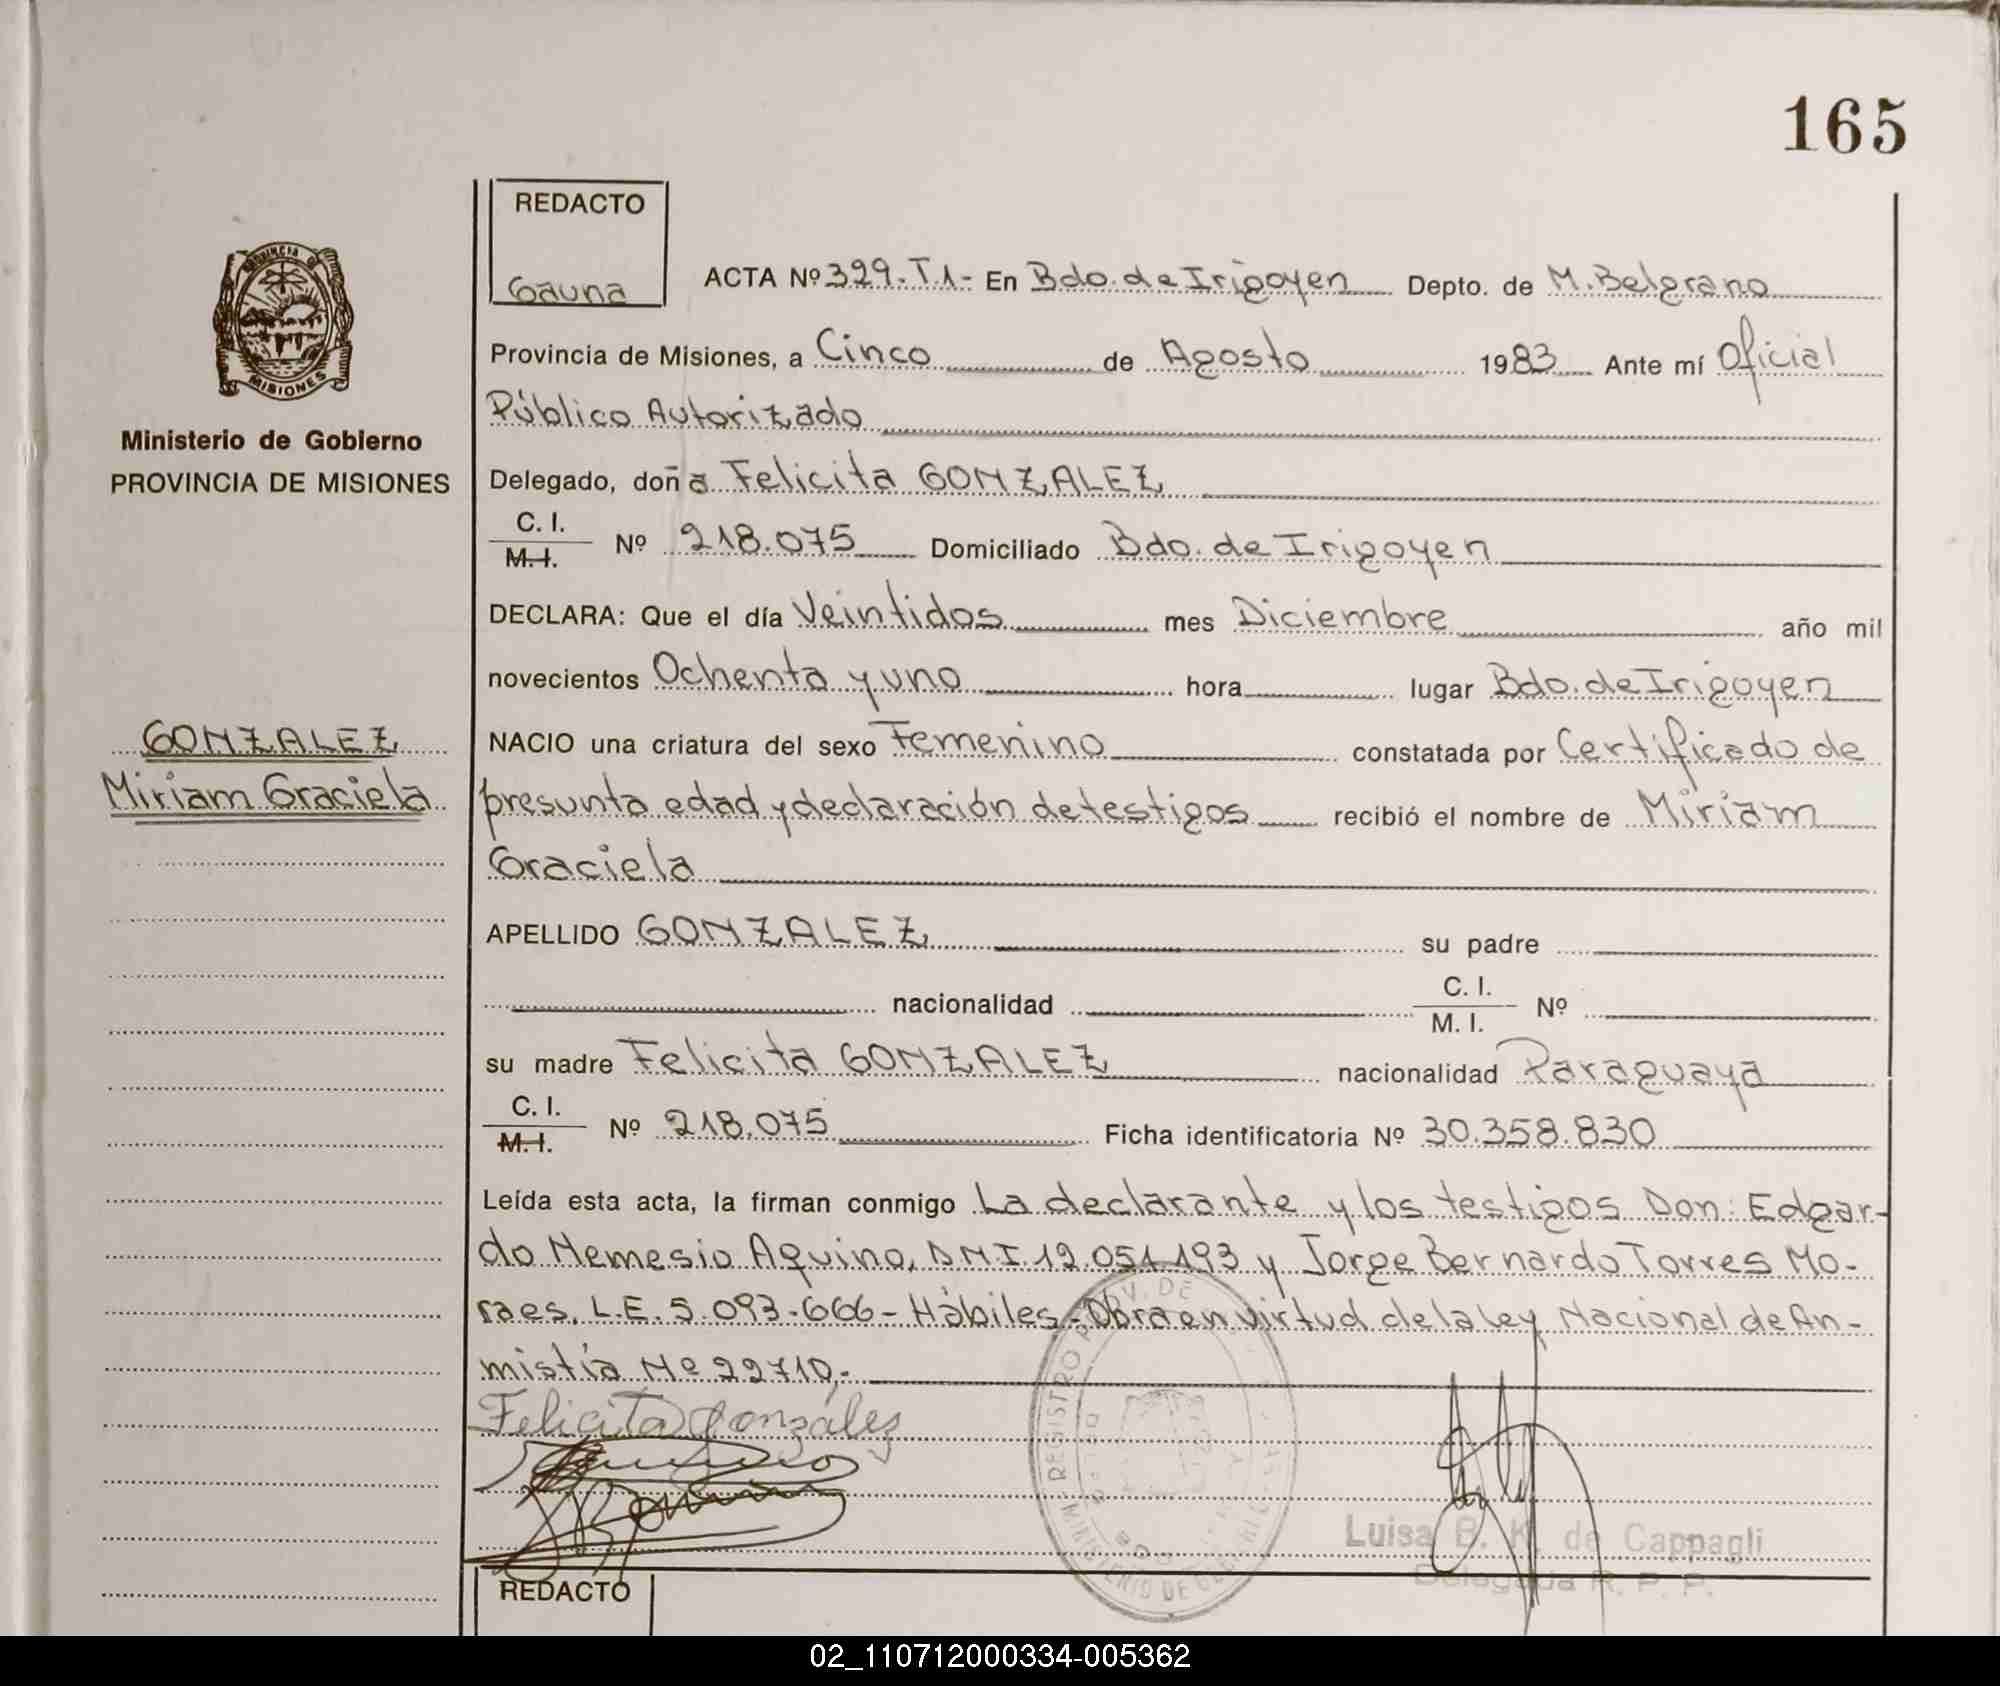 165
REDACTO
Gauna
ACTA Nº 329.T.1- En Bdo. de Irigoyen Depto. de M. Belgrano
Provincia de Misiones, a Cinco de Agosto 1983 Ante mí Oficial
Público Autorizado
Delegado, doña Felicita GONZALEZ
C. I.
M. I. Nº 218.075 Domiciliado Bdo. de Irigoyen
DECLARA: Que el día Veintidos mes Diciembre año mil
novecientos Ochenta y uno hora lugar Bdo. de Irigoyen
NACIO una criatura del sexo Femenino constatada por Certificado de
presunta edad y declaración de testigos recibió el nombre de Miriam
Graciela
APELLIDO GONZALEZ su padre
nacionalidad C. I. Nº
M. I.
su madre Felicita GONZALEZ nacionalidad Paraguaya
C. I.
M. I. Nº 218.075 Ficha identificatoria Nº 30.358.830
Leída esta acta, la firman conmigo La declarante y los testigos Don: Edgar-
do Nemesio Aquino, DNI.12.051.193 y Jorge Bernardo Torres Mo-
raes. L.E. 5.093.666- Hábiles.- Obra en virtud de la ley Nacional de Am-
mistía Nº 22710.-
Felicita Gonzáles
Luisa B. K. de Cappagli
Delegada R. P. P.
REGISTRO PROV. DE
MINISTERIO DE
REDACTO
PROVINCIA DE
MISIONES
Ministerio de Gobierno
PROVINCIA DE MISIONES
GONZALEZ
Miriam Graciela
02_110712000334-005362